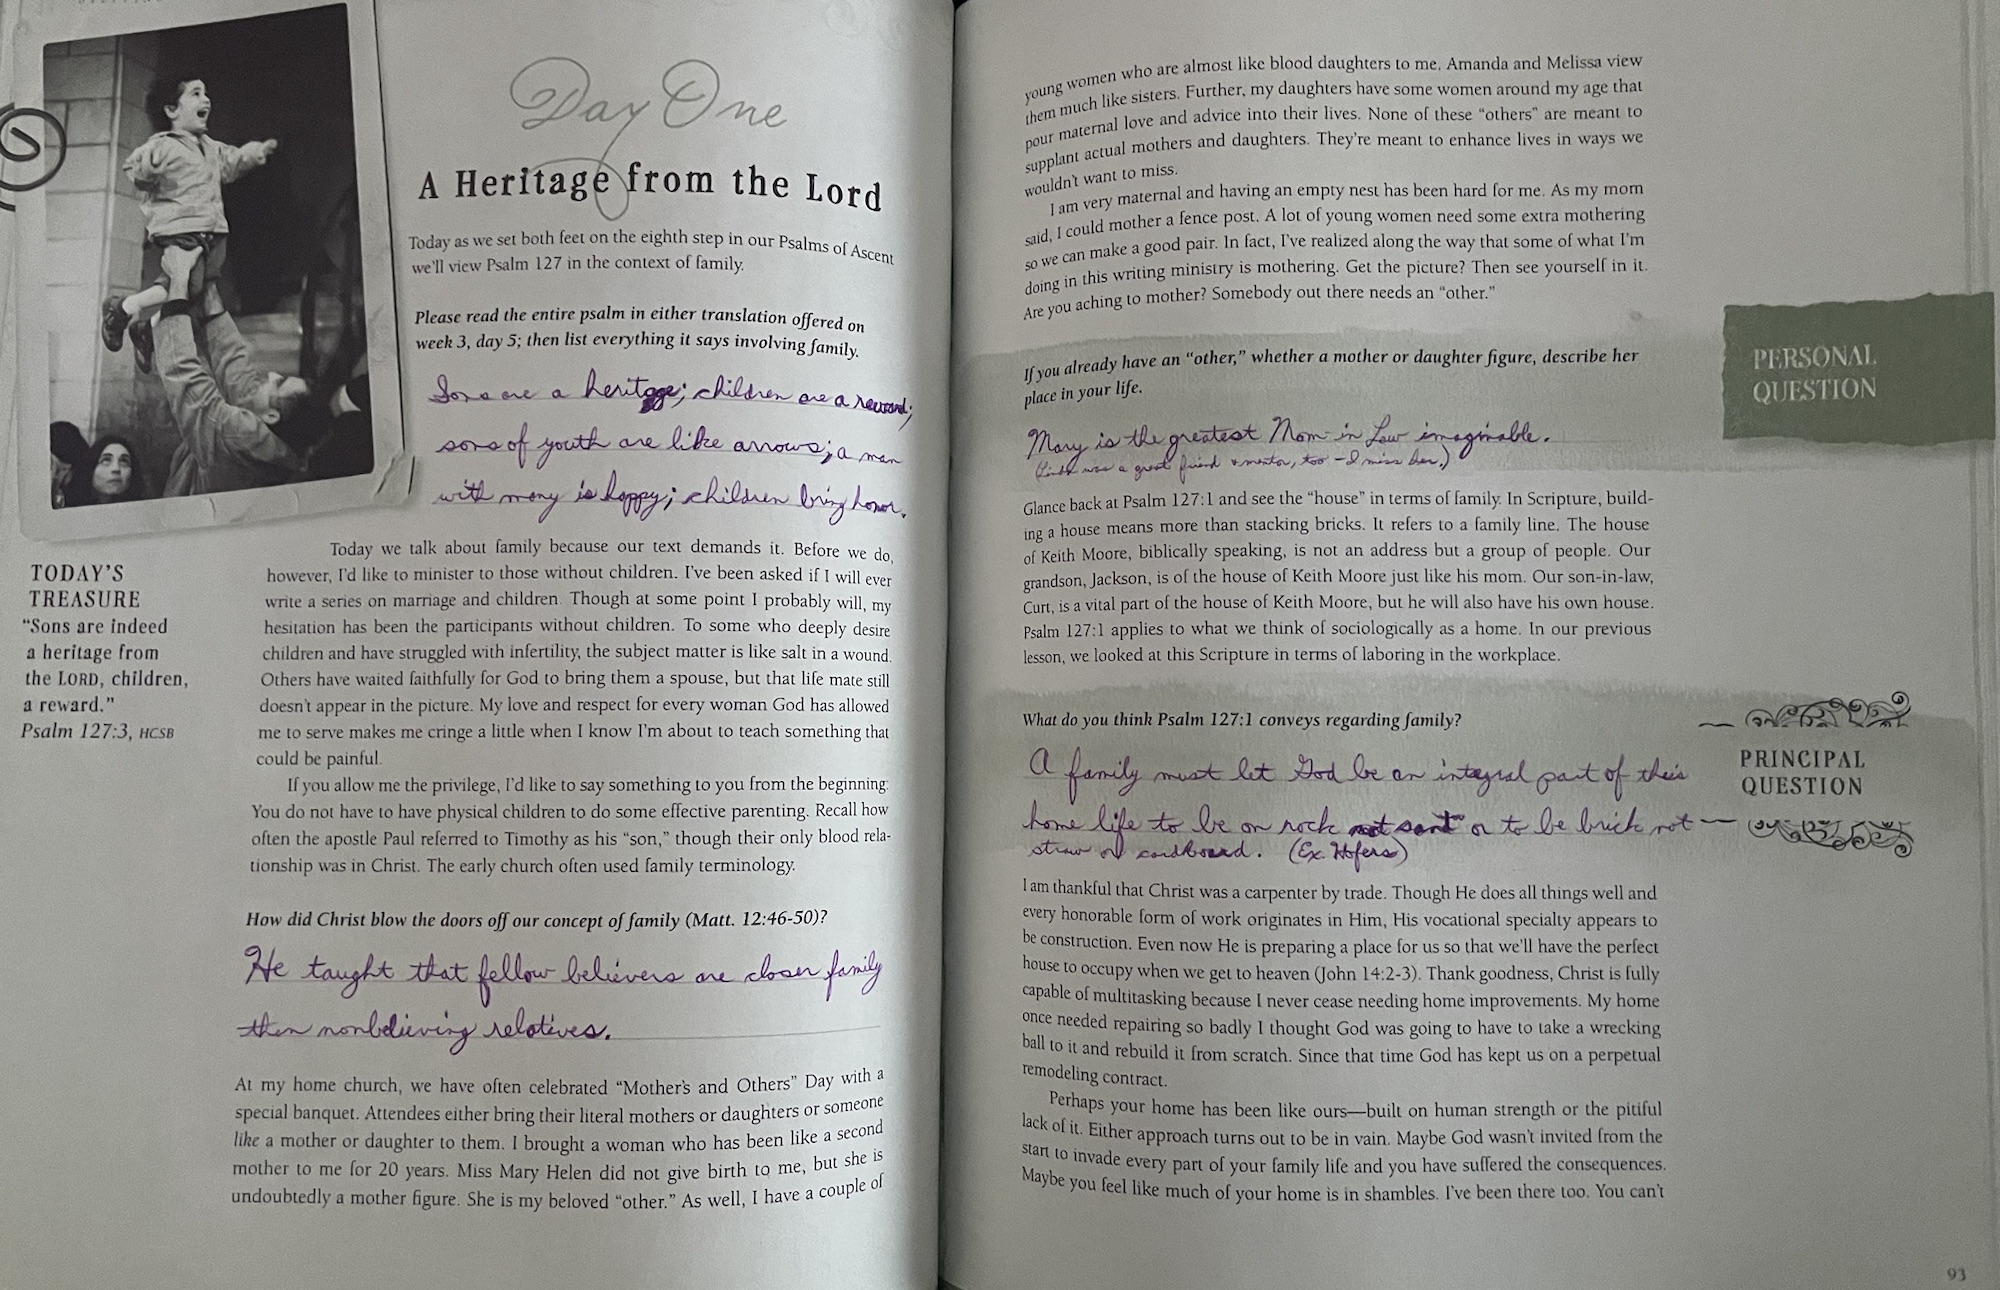 Day One
A Heritage from the Lord
Today as we set both feet on the eighth step in our Psalms of Ascent
we'll view Psalm 127 in the context of family.
Please read the entire psalm in either translation offered on
week 3, day 5; then list everything it says involving family.
Sons are a heritage; children are a reward;
sons of youth are like arrows; a man
with many is happy; children bring honor.
TODAY'S
TREASURE
"Sons are indeed
a heritage from
the LORD, children,
a reward."
Psalm 127:3, HCSB
Today we talk about family because our text demands it. Before we do,
however, I'd like to minister to those without children. I've been asked if I will ever
write a series on marriage and children. Though at some point I probably will, my
hesitation has been the participants without children. To some who deeply desire
children and have struggled with infertility, the subject matter is like salt in a wound.
Others have waited faithfully for God to bring them a spouse, but that life mate still
doesn't appear in the picture. My love and respect for every woman God has allowed
me to serve makes me cringe a little when I know I'm about to teach something that
could be painful.
If you allow me the privilege, I'd like to say something to you from the beginning:
You do not have to have physical children to do some effective parenting. Recall how
often the apostle Paul referred to Timothy as his "son," though their only blood rela-
tionship was in Christ. The early church often used family terminology.
How did Christ blow the doors off our concept of family (Matt. 12:46-50)?
He taught that fellow believers are closer family
than nonbelieving relatives.
At my home church, we have often celebrated "Mother's and Others" Day with a
special banquet. Attendees either bring their literal mothers or daughters or someone
like a mother or daughter to them. I brought a woman who has been like a second
mother to me for 20 years. Miss Mary Helen did not give birth to me, but she is
undoubtedly a mother figure. She is my beloved "other." As well, I have a couple of
young women who are almost like blood daughters to me. Amanda and Melissa view
them much like sisters. Further, my daughters have some women around my age that
pour maternal love and advice into their lives. None of these "others" are meant to
supplant actual mothers and daughters. They're meant to enhance lives in ways we
wouldn't want to miss.
I am very maternal and having an empty nest has been hard for me. As my mom
said, I could mother a fence post. A lot of young women need some extra mothering
so we can make a good pair. In fact, I've realized along the way that some of what I'm
doing in this writing ministry is mothering. Get the picture? Then see yourself in it.
Are you aching to mother? Somebody out there needs an "other."
PERSONAL
QUESTION
If you already have an "other," whether a mother or daughter figure, describe her
place in your life.
Mary is the greatest Mom-in Law imaginable.
was a great friend & mentor, too - I miss her.)
Glance back at Psalm 127:1 and see the "house" in terms of family. In Scripture, build-
ing a house means more than stacking bricks. It refers to a family line. The house
of Keith Moore, biblically speaking, is not an address but a group of people. Our
grandson, Jackson, is of the house of Keith Moore just like his mom. Our son-in-law,
Curt, is a vital part of the house of Keith Moore, but he will also have his own house.
Psalm 127:1 applies to what we think of sociologically as a home. In our previous
lesson, we looked at this Scripture in terms of laboring in the workplace.
What do you think Psalm 127:1 conveys regarding family?
PRINCIPAL
QUESTION
A family must let God be an integral part of their
home life to be on rock not sand or to be brick not
straw or cardboard. (Ex. Hofers)
I am thankful that Christ was a carpenter by trade. Though He does all things well and
every honorable form of work originates in Him, His vocational specialty appears to
be construction. Even now He is preparing a place for us so that we'll have the perfect
house to occupy when we get to heaven (John 14:2-3). Thank goodness, Christ is fully
capable of multitasking because I never cease needing home improvements. My home
once needed repairing so badly I thought God was going to have to take a wrecking
ball to it and rebuild it from scratch. Since that time God has kept us on a perpetual
remodeling contract.
Perhaps your home has been like ours—built on human strength or the pitiful
lack of it. Either approach turns out to be in vain. Maybe God wasn't invited from the
start to invade every part of your family life and you have suffered the consequences.
Maybe you feel like much of your home is in shambles. I've been there too. You can't
93